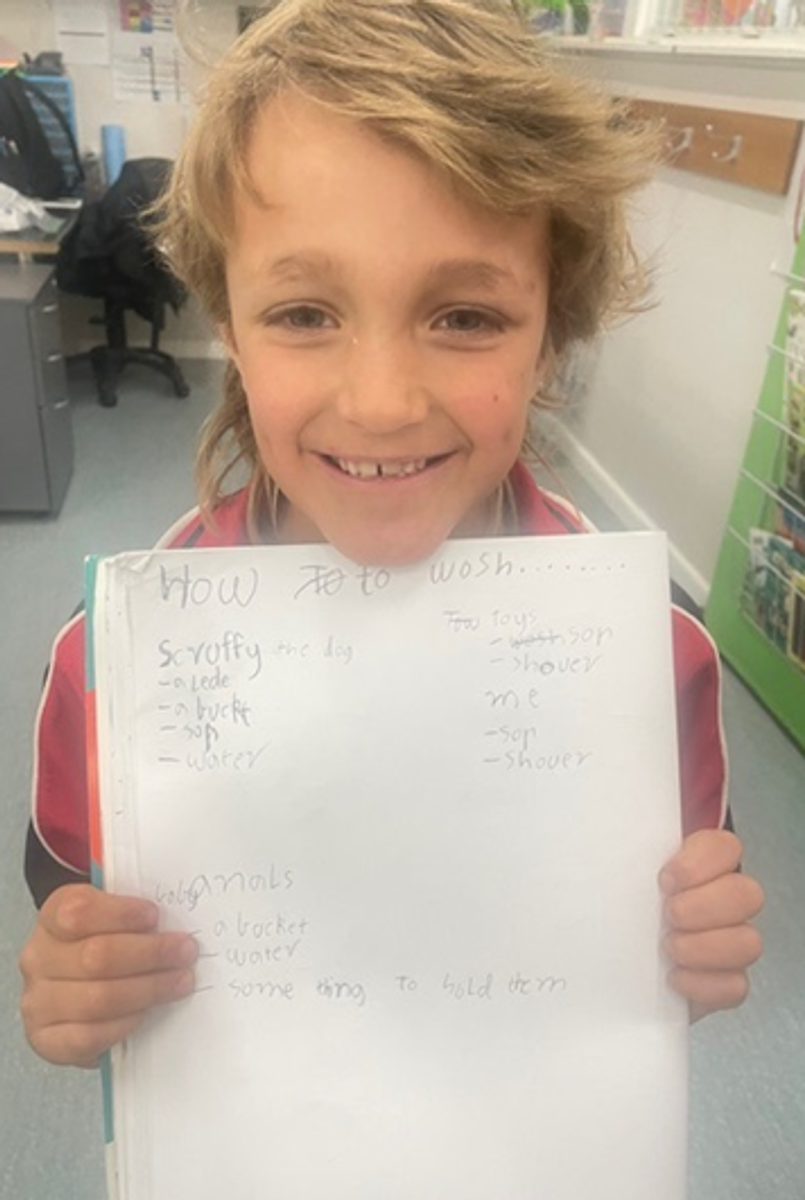 How to to wosh........
Scruffy the dog
- a lede
- a buckt
- sop
- water
Tow Toys
- wosh sop
- shover
me
- sop
- shover
baby anails
- a bucket
- water
- some thing to hold them